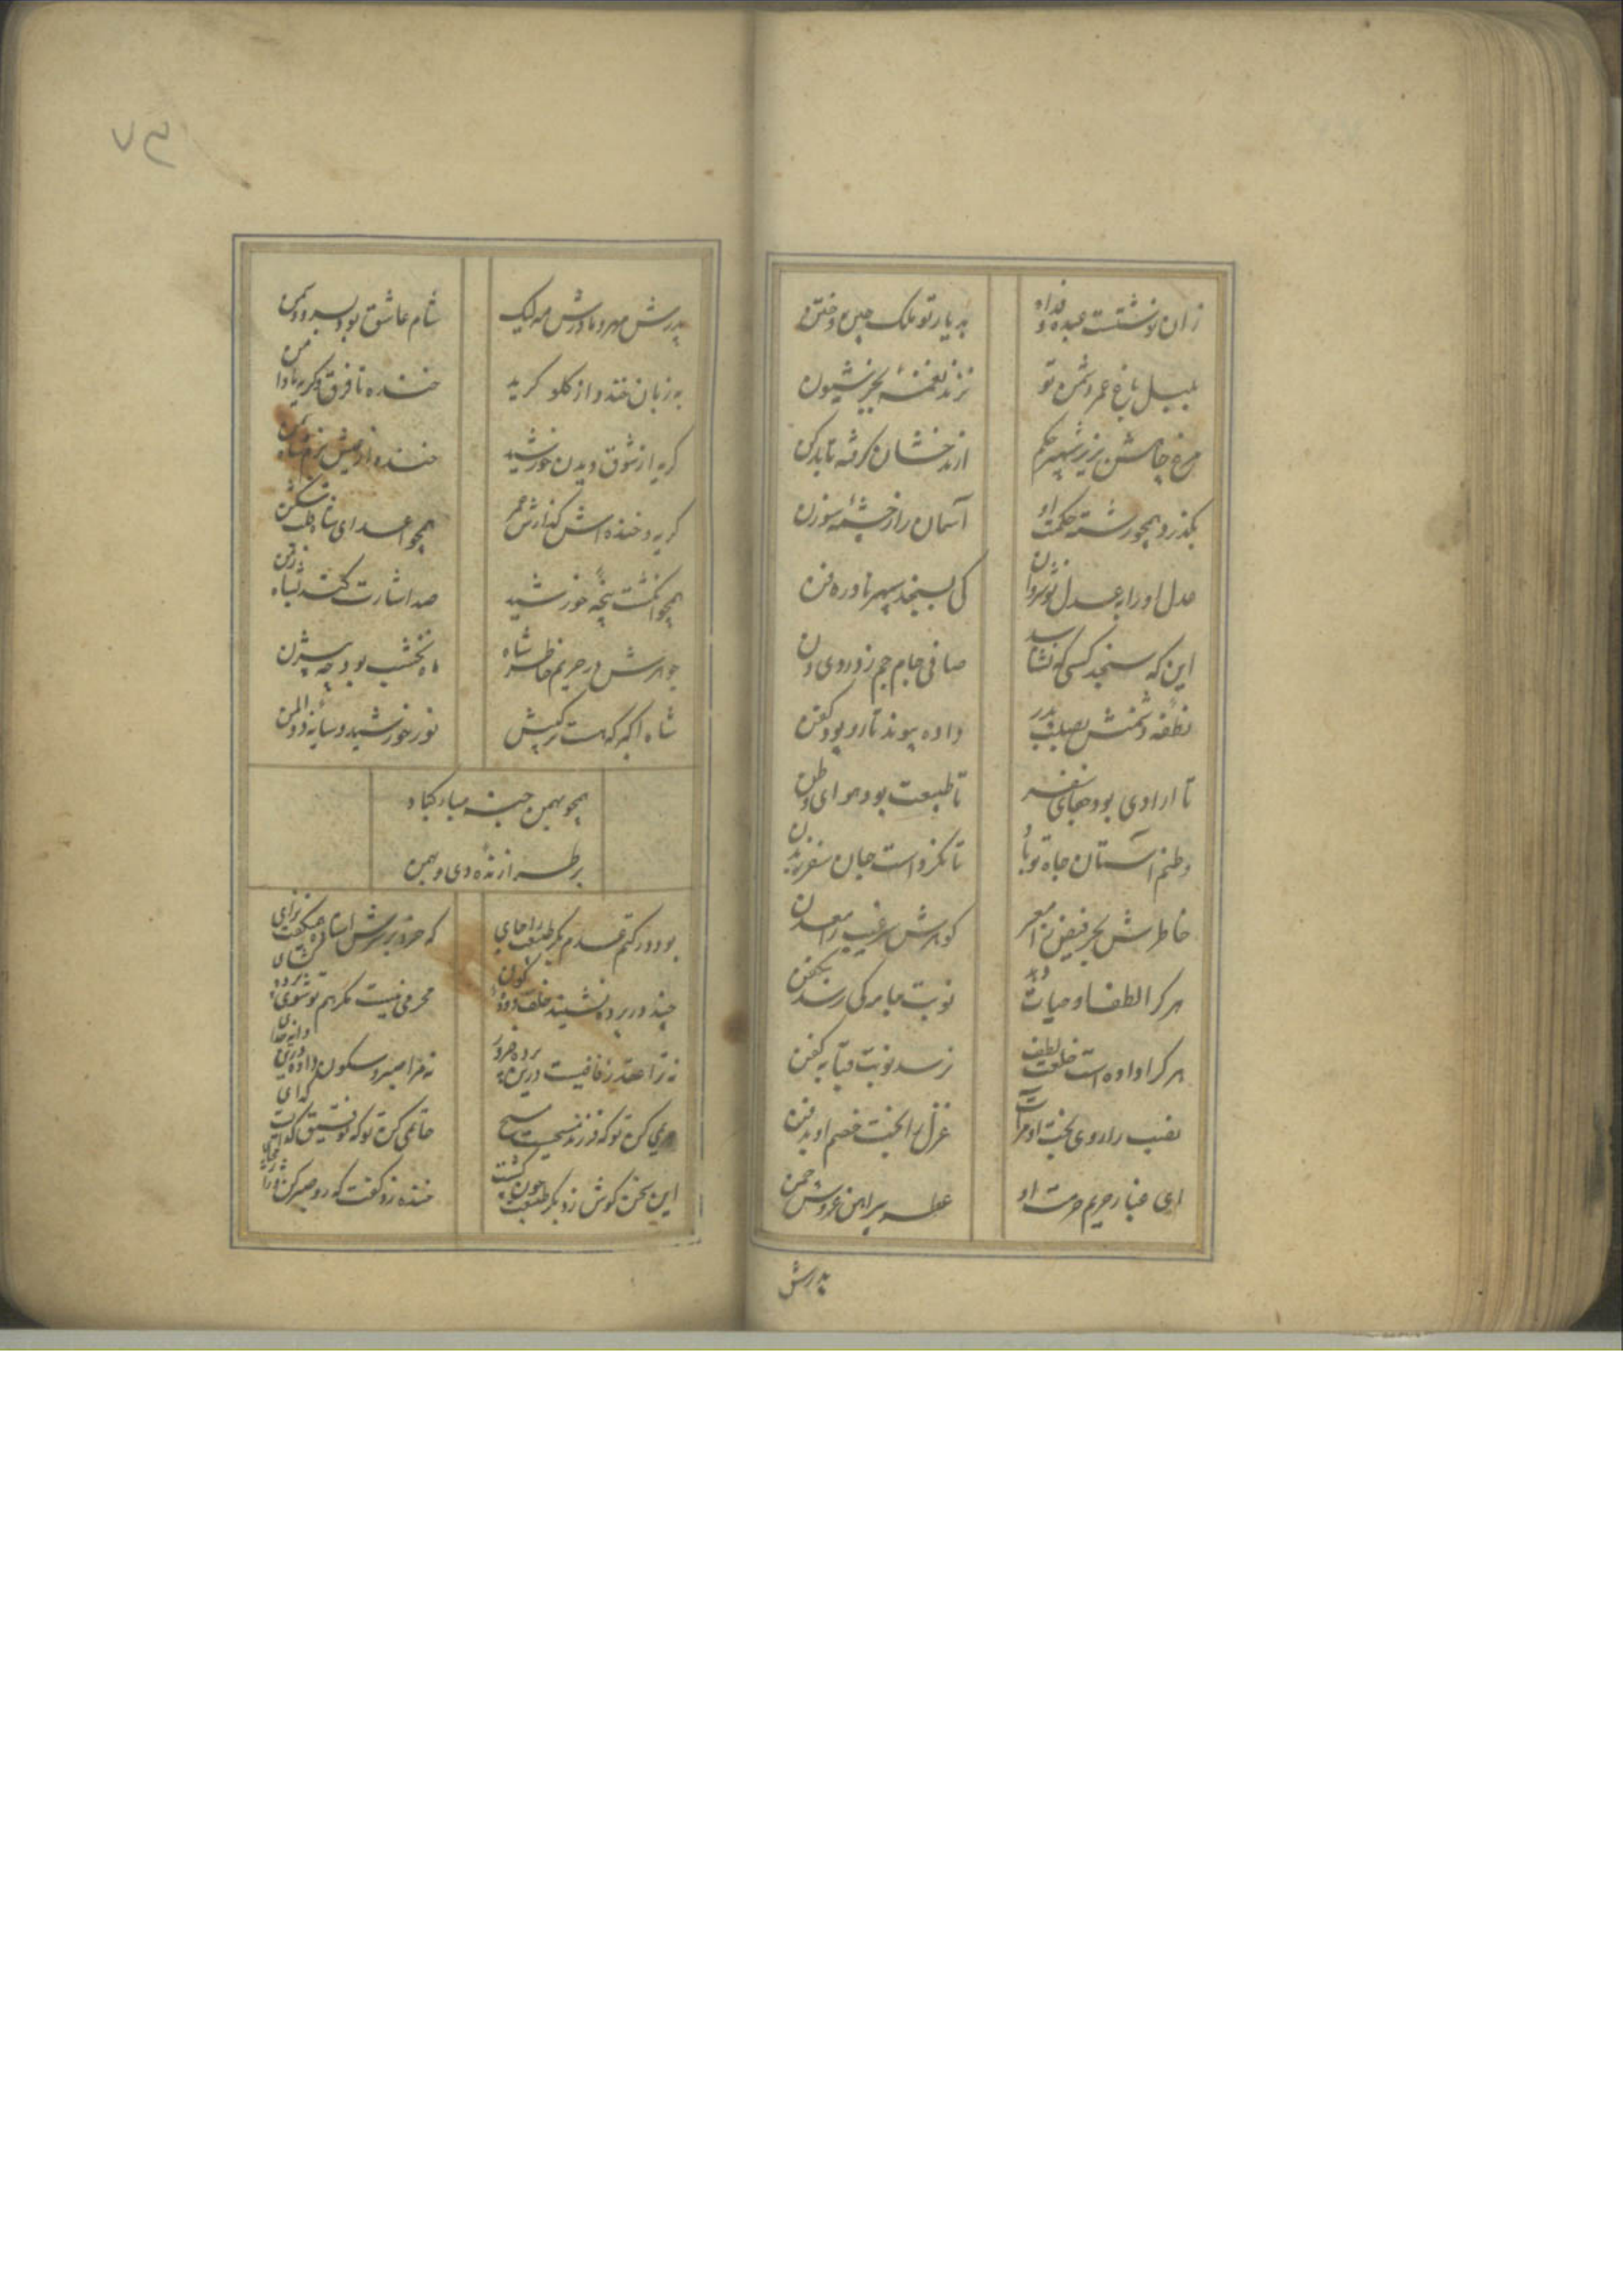 زان نوشتست عبده و فداه
به دیار تو ملک چین و ختن
بلبل باغ عمر دشمن تو
نزند نغمهٔ بجز شیون
مرغ جانش بزیر شهپر حکم
از بدخشان گرفته تا بدکن
بگذرد همچو رشته حکمت او
آسمان را ز چشمهٔ سوزن
عدل او را به عدل نوشروان
کی بسنجد سپهر نادره فن
این که سنجد کسی که نشناسد
صافی جام جم ز دردی دن
نطفه دشمنش بصلب پدر
داده پیوند تار و پود کفن
تا ارادی بود سفر
تا طبیعت بود هوای وطن
وطنم آستان جاه تو باد
تا نکرد است جان سفر ز بدن
خاطرش بحر فیض را معبر
گوهرش سر غیب را معدن
هر کرا لطف او حیات دهد
نوبت جامه کی رسد بکفن
هر کرا داده است خلعت لطف
نرسد نوبت قبا به کفن
نصب را روی بخت او مرآت
عزل را بخت خصم او بدفن
ای غبار حریم حرمت او
عطر پیراهن عروس چمن
پدرش
۷۳
پدرش مهر و مادرش مه لیک
شام عاشق بود بسر و دمن
به زبان خندد از گلو گرید
خنده تا فرق و گریه تا دامن
گریه از شوق دیدن خورشید
خنده از عیش بزم شاه زمن
گریه و خنده اش گذارش عمر
همچو اعدای شاه قلب شکن
همچو انگشت پنجهٔ خورشید
صد اشارت کند بشاه زمن
جوهرش در حریم خاطر شاه
ماه نخشب بود چه بیژن
شاه اکبر که هست در کیش
نور خورشید و سایه ذو المن
همچو بهمن جشن مبارکباد
بر طرازندهٔ دی و بهمن
بود در کتم عدم بکر طبیعت را جای
که خرد بر سرش استاده همیگفت برای
چند در پرده نشیند خلف دودهٔ کون
محرمی نیست مگر هم تو شوی پرده گشای
نه ترا عقد زفافیست درین پرده ضرور
نه مرا صبر و سکون داده درین دایره خدای
مریمی کن تو که فرزند مسیحست مسیح
حاتمی کن تو که توفیق گدایست گدای
این سخن گوش زد بکر طبیعت چون گشت
خنده زد گفت که رو صبر کن و ژاژ مخای